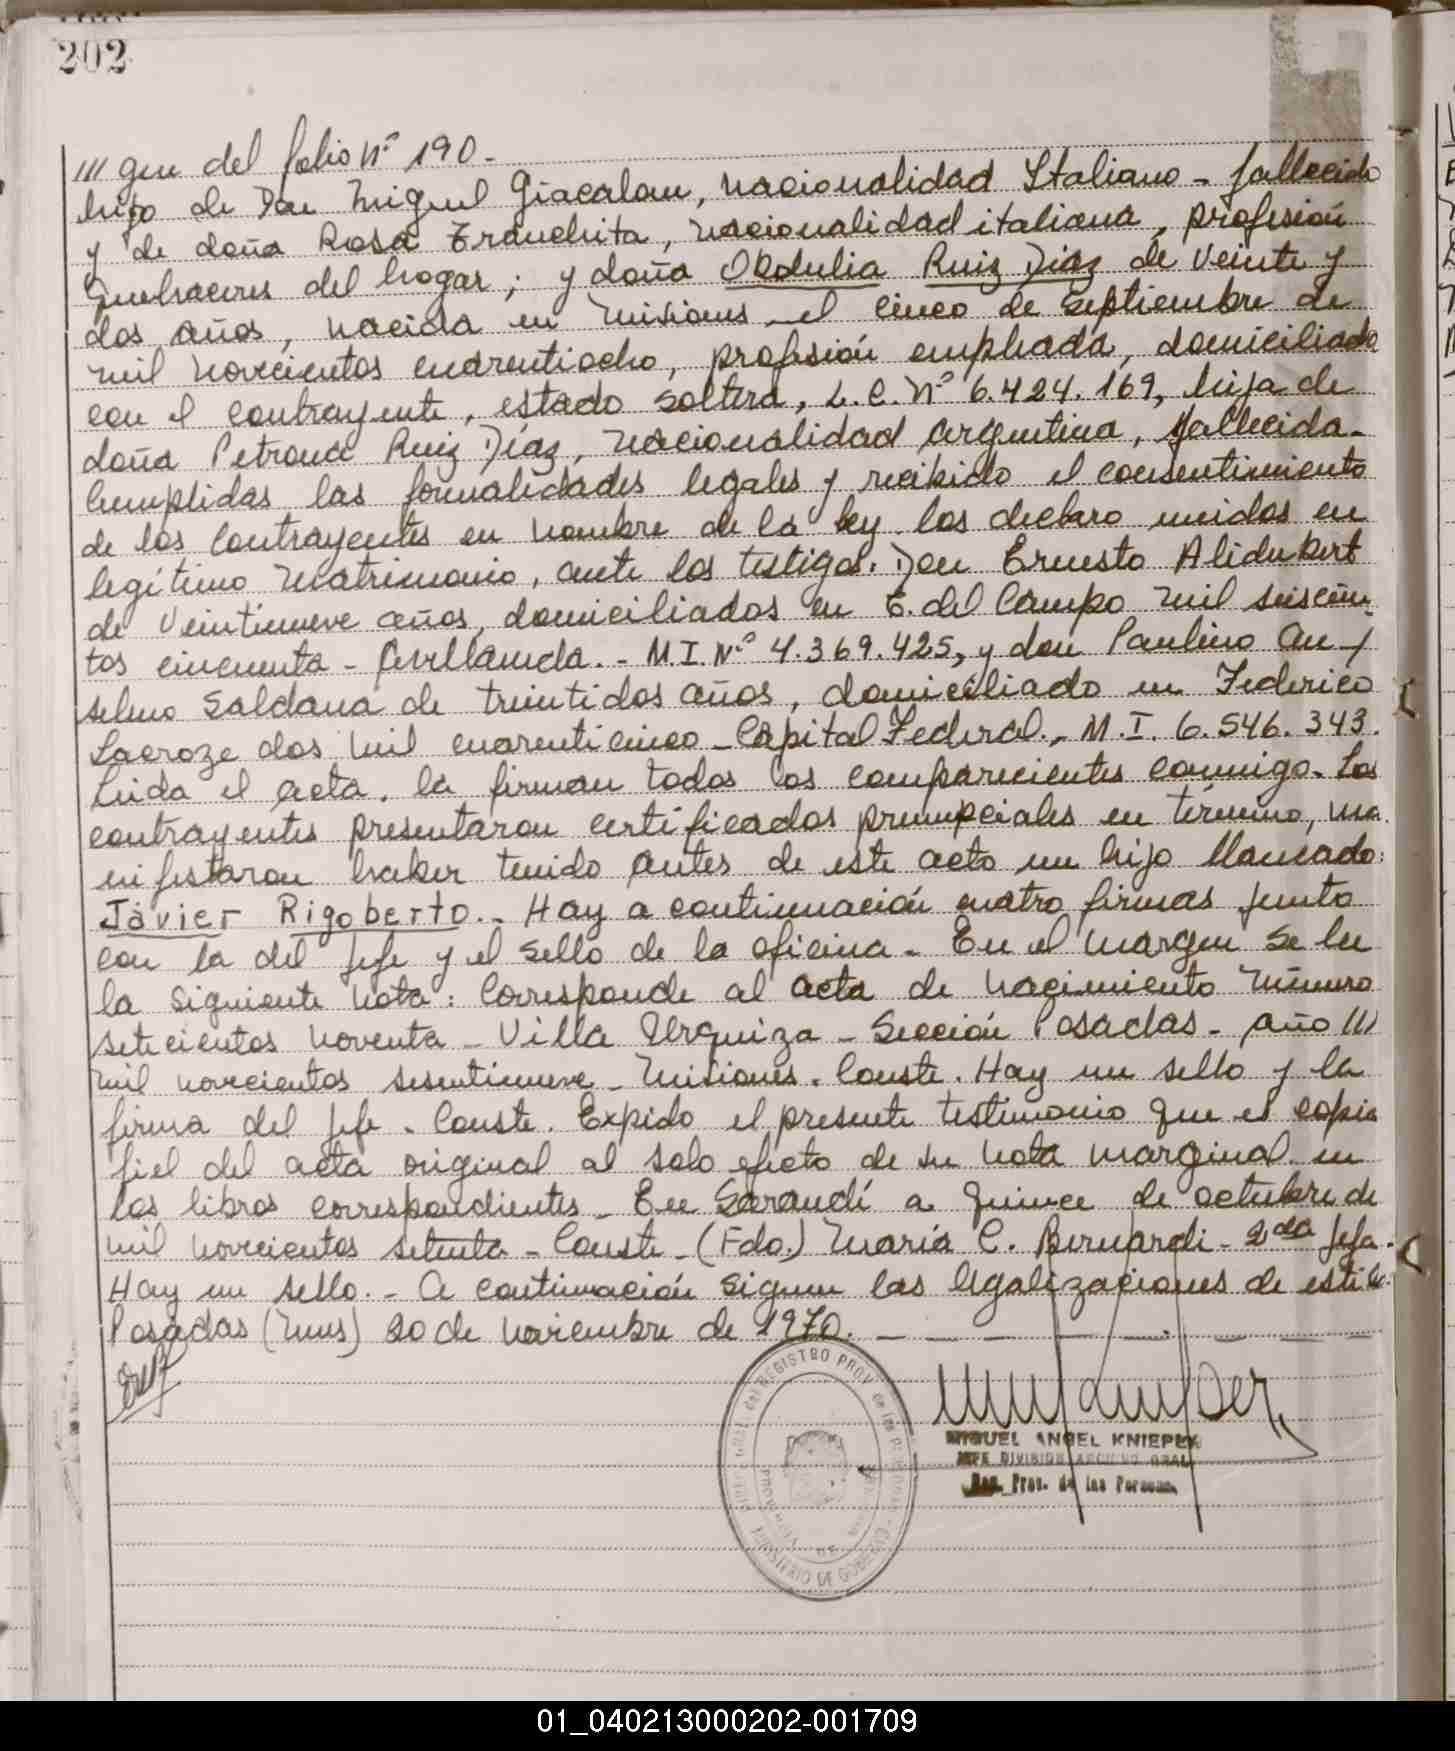 202
/// gen del folio Nº 190.-
hijo de Don Miguel Giacalone, nacionalidad Italiano - fallecido
y de doña Rosa Franchita, nacionalidad italiana, profesión
quehaceres del hogar; y doña Obdulia Ruiz Diaz de veinte y
dos años, nacida en Misiones - el cinco de septiembre de
mil novecientos cuarentiocho, profesión empleada, domiciliada
con el contrayente, estado soltera, L.C. Nº 6.424.169, hija de
doña Petrona Ruiz Díaz, nacionalidad argentina, fallecida.
Cumplidas las formalidades legales y recibido el consentimiento
de los contrayentes en nombre de la ley los declaro unidos en
legítimo matrimonio, ante los testigos. Don Ernesto
de veintinueve años, domiciliados en E. del Campo mil seiscien
tos cincuenta - Avellaneda. - M.I. Nº 4.369.425, y don Paulino An-/
selmo Saldana de treintidos años, domiciliado en Federico
Lacroze dos mil cuarenticinco - Capital Federal. - M.I. 6.546.343.
Leida el acta, la firman todos los comparecientes conmigo. Los
contrayentes presentaron certificados prenupciales en término, ma
nifestaron haber tenido antes de este acto un hijo llamado:
Javier Rigoberto. - Hay a continuación cuatro firmas junto
con la del jefe y el sello de la oficina. - En el margen se lee
la siguiente nota: Corresponde al acta de nacimiento número
setecientos noventa - Villa Urquiza - Sección Posadas - año ///
mil novecientos sesentinueve - Misiones. Conste. Hay un sello y la
firma del jefe. Conste. Expido el presente testimonio que es copia
fiel del acta original al solo efecto de su nota marginal en
los libros correspondientes - En Sarandí a quince de octubre de
mil novecientos setenta - Conste - (Fdo.) María C. Bernardi - 2da Jefa.
Hay un sello. - A continuación siguen las legalizaciones de estilo.
Posadas (Mnes) 20 de noviembre de 1970. — — — — — — —
REGISTRO PROV. de las Personas
MINISTERIO DE GOBIERNO
MIGUEL ANGEL KNIEPER
JEFE DIVISION ARCHIVO GRAL
Reg. Prov. de las Personas
01_040213000202-001709